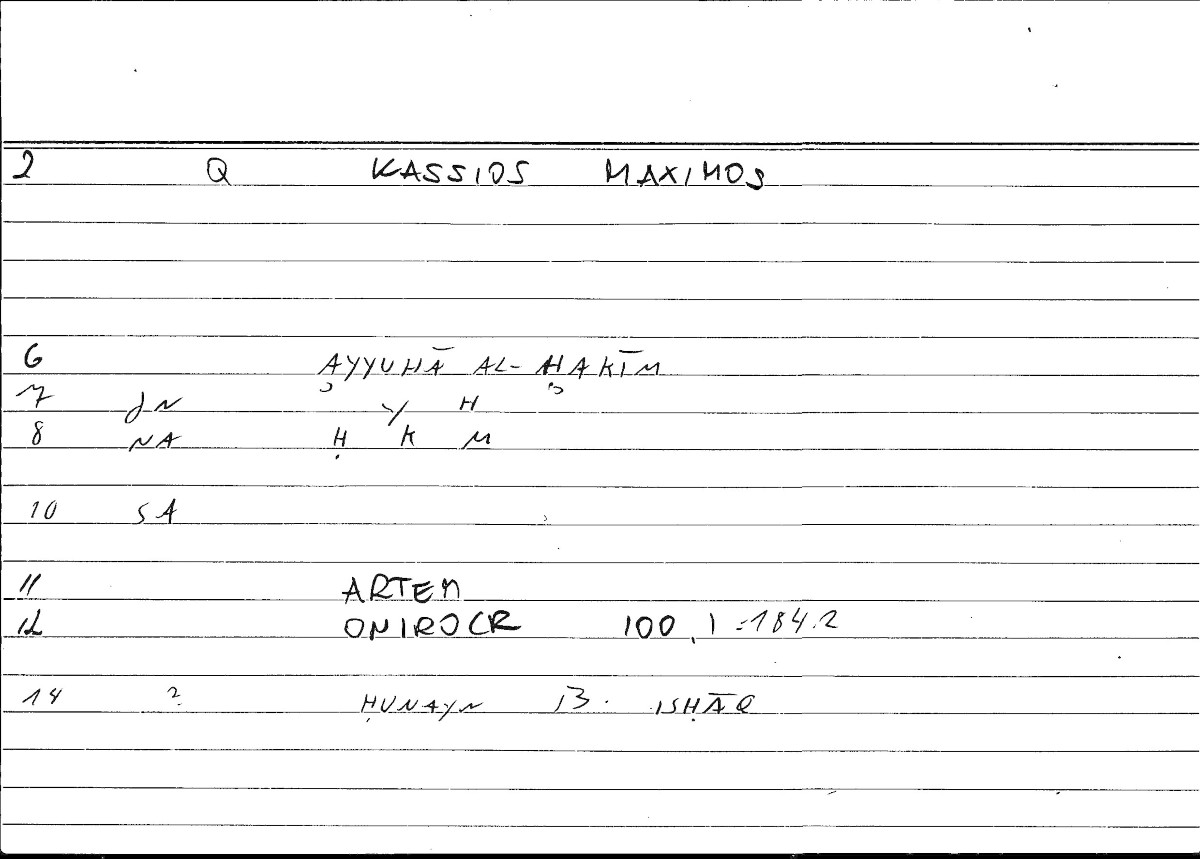 2 Q KASSIOS MAXIMOS
6 AYYUHĀ AL-ḤAKĪM
7 JN Y H
8 NA Ḥ K M
10 SA
11 ARTEM
12 ONIROCR 100,1 = 184.2
14 ? ḤUNAYN B. ISḤĀQ